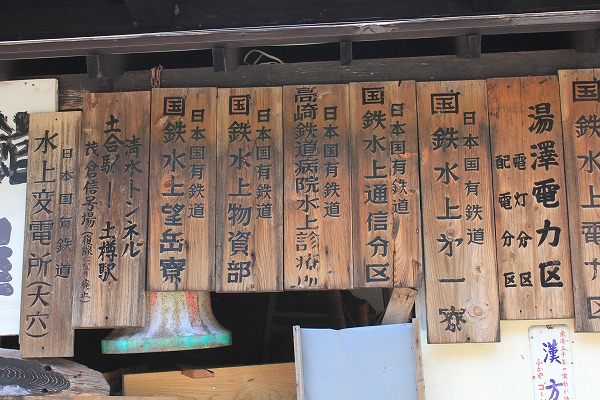 日本国有鉄道
水上変電所(大六)
清水トンネル
土合駅ー土樽駅
茂倉信号場
日本国有鉄道
国鉄水上望岳寮
日本国有鉄道
国鉄水上物資部
日本国有鉄道
高崎鉄道病院水上診療所
日本国有鉄道
国鉄水上通信分区
日本国有鉄道
国鉄水上第一寮
湯澤電力区
電灯分区
配電分区
国鉄水上
漢方